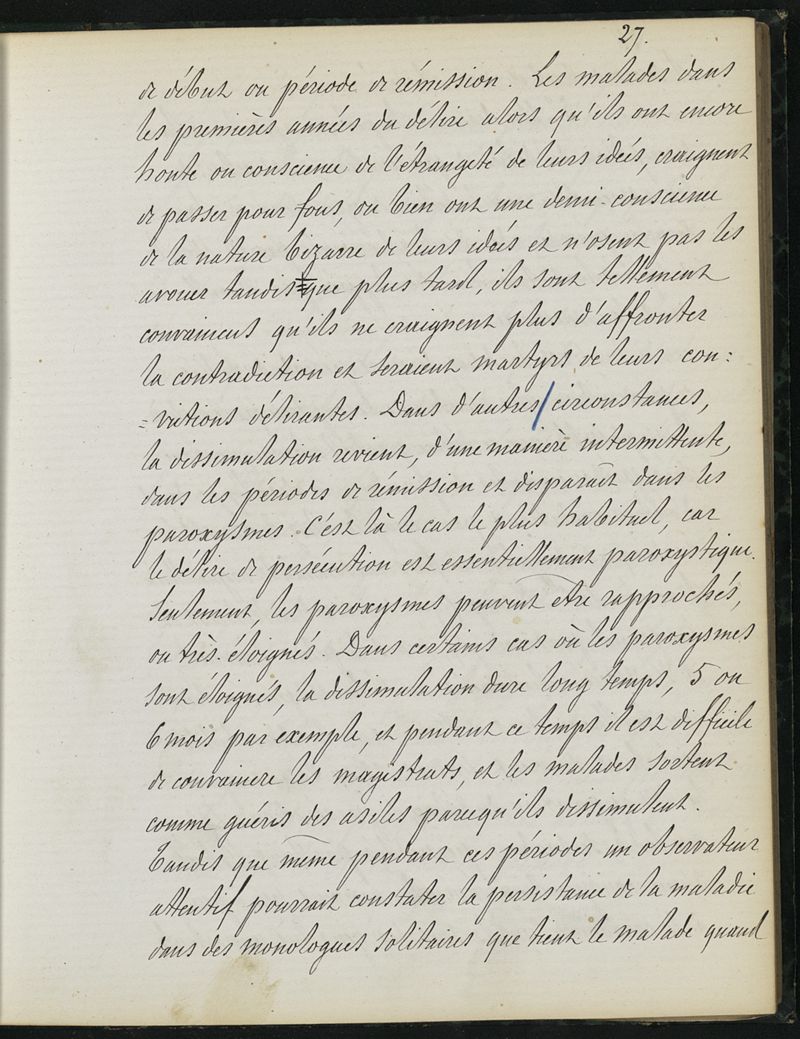 27.
de début ou période de rémission. Les malades dans
les premières années du délire alors qu'ils ont encore
honte ou conscience de l'étrangeté de leurs idées, craignent
de passer pour fous, ou bien ont une demi-conscience
de la nature bizarre de leurs idées et n'osent pas les
avouer tandis que plus tard, ils sont tellement
convaincus qu'ils ne craignent plus d'affronter
la contradiction et seraient martyrs de leurs con:
=victions délirantes. Dans d'autres/circonstances,
la dissimulation revient, d'une manière intermittente,
dans les périodes de rémission et disparaît dans les
paroxysmes. C'est là le cas le plus habituel, car
le délire de persécution est essentiellement paroxystique.
Seulement, les paroxysmes peuvent être rapprochés,
ou très-éloignés. Dans certains cas où les paroxysmes
sont éloignés, la dissimulation dure long temps, 5 ou
6 mois par exemple, et pendant ce temps il est difficile
de convaincre les magistrats, et les malades sortent
comme guéris des asiles parcequ'ils dissimulent.
Tandis que même pendant ces périodes un observateur
attentif pourrait constater la persistance de la maladie
dans des monologues solitaires que tient le malade quand